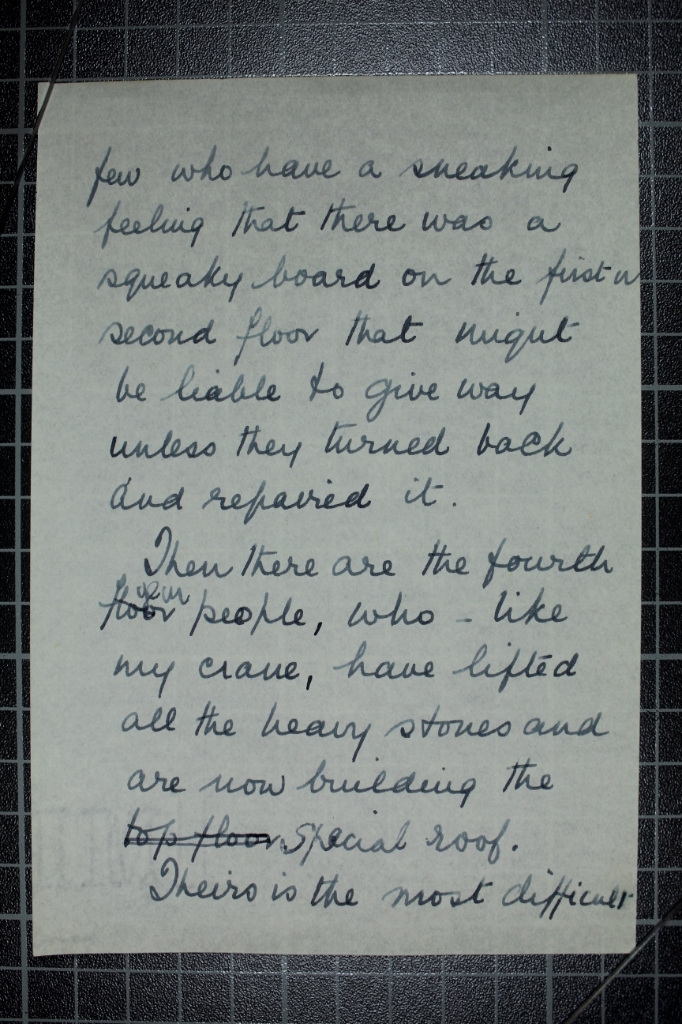 few who have a sneaking
feeling that there was a
squeaky board on the first or
second floor that might
be liable to give way
unless they turned back
and repaired it.
Then there are the fourth
year
floor people, who - like
my crane, have lifted
all the heavy stones and
are now building the
top floor. special roof.
Theirs is the most difficult